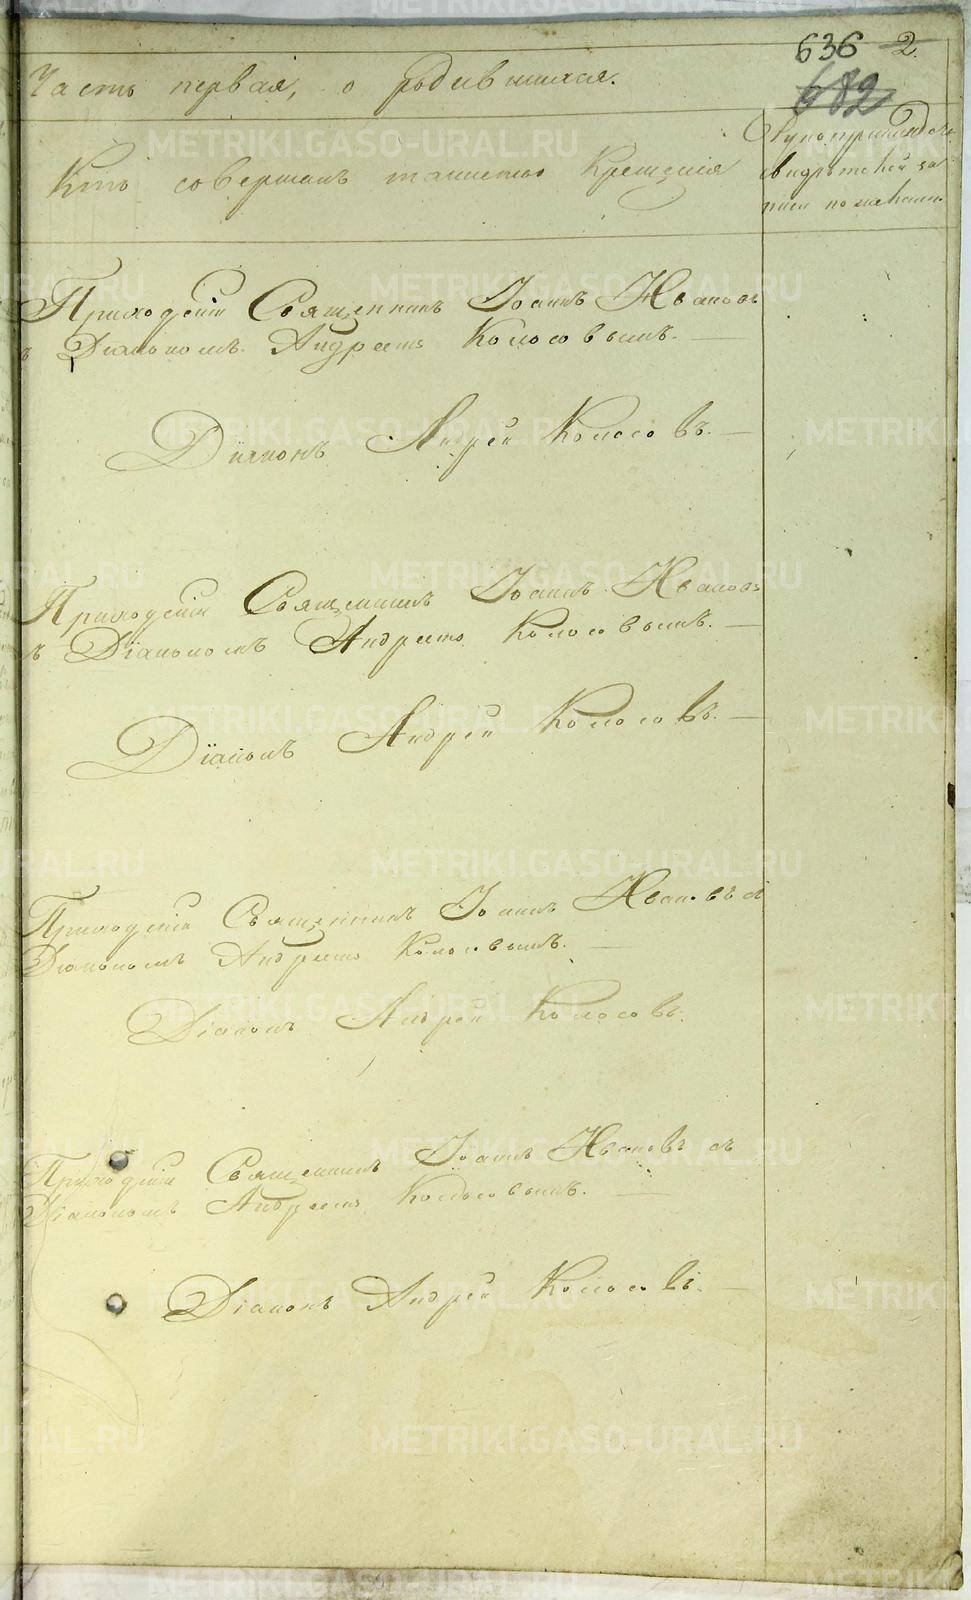 636 2.
682
Часть первая, о родившихся.
Кто совершалъ таинство Крещенія
Рукоприкладство
свидѣтелей за-
писи по желанію.
Приходскій Священникъ Іоаннъ Ивановъ
съ Діакономъ Андреемъ Колосовымъ.
Діаконъ Андрей Колосовъ.
Приходскій Священникъ Іоаннъ Ивановъ
съ Діакономъ Андреемъ Колосовымъ.
Діаконъ Андрей Колосовъ.
Приходскій Священникъ Іоаннъ Ивановъ съ
Діакономъ Андреемъ Колосовымъ.
Діаконъ Андрей Колосовъ.
Приходскій Священникъ Іоаннъ Ивановъ съ
Діакономъ Андреемъ Колосовымъ.
Діаконъ Андрей Колосовъ.
METRIKI.GASO-URAL.RU